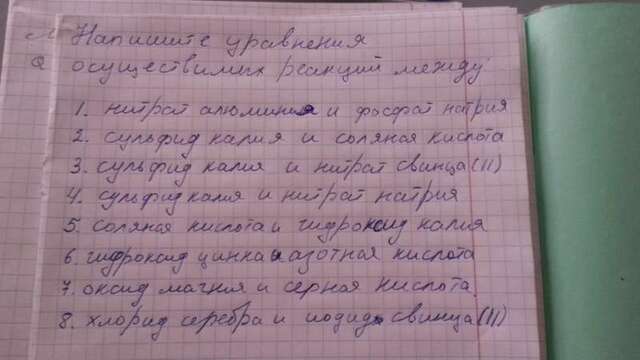 Напишите уравнения
осуществимых реакций между
1. нитрат алюминия и фосфат натрия
2. сульфид калия и соляная кислота
3. сульфид калия и нитрат свинца (II)
4. сульфид калия и нитрат натрия
5. соляная кислота и гидроксид калия
6. гидроксид цинка и азотная кислота
7. оксид магния и серная кислота
8. хлорид серебра и иодид свинца (II)